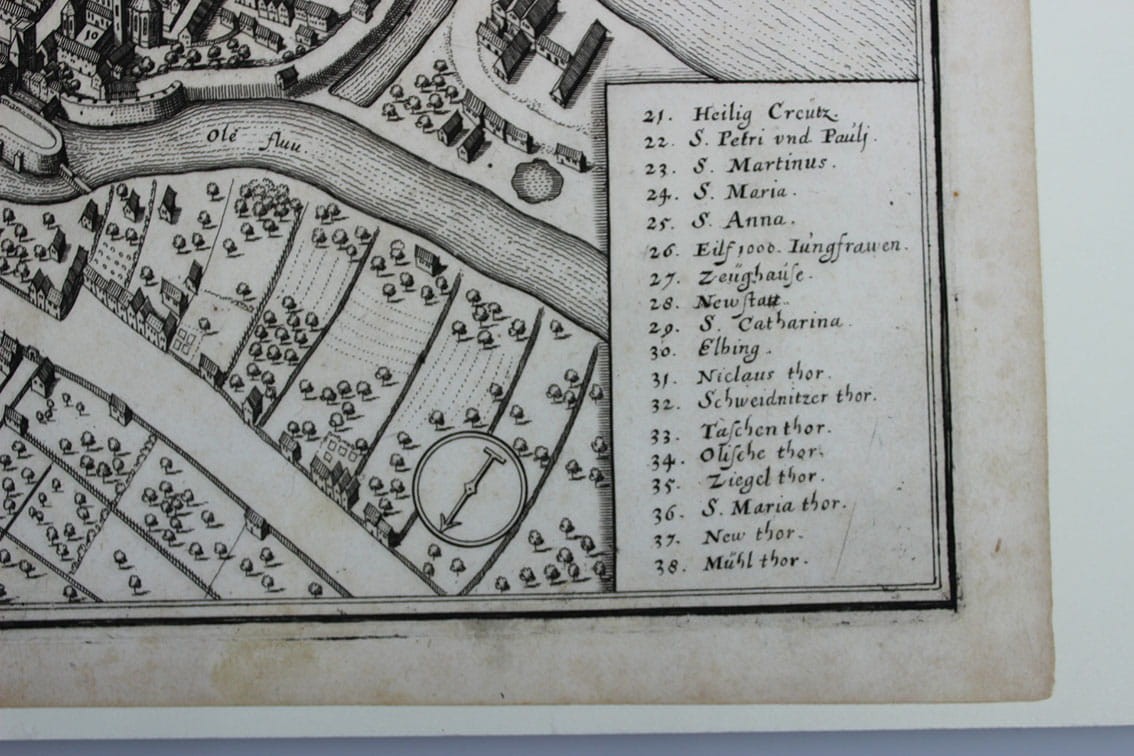 10
Olé fluu.
21. Heilig Creütz.
22. S. Petri vnd Paulj.
23. S. Martinus.
24. S. Maria.
25. S. Anna.
26. Eilf 1000. Iungfrawen.
27. Zeüghauſe.
28. Newſtatt.
29. S. Catharina.
30. Elbing.
31. Niclaus thor.
32. Schweidnitzer thor.
33. Taſchen thor.
34. Oliſche thor.
35. Ziegel thor.
36. S. Maria thor.
37. New thor.
38. Mühl thor.